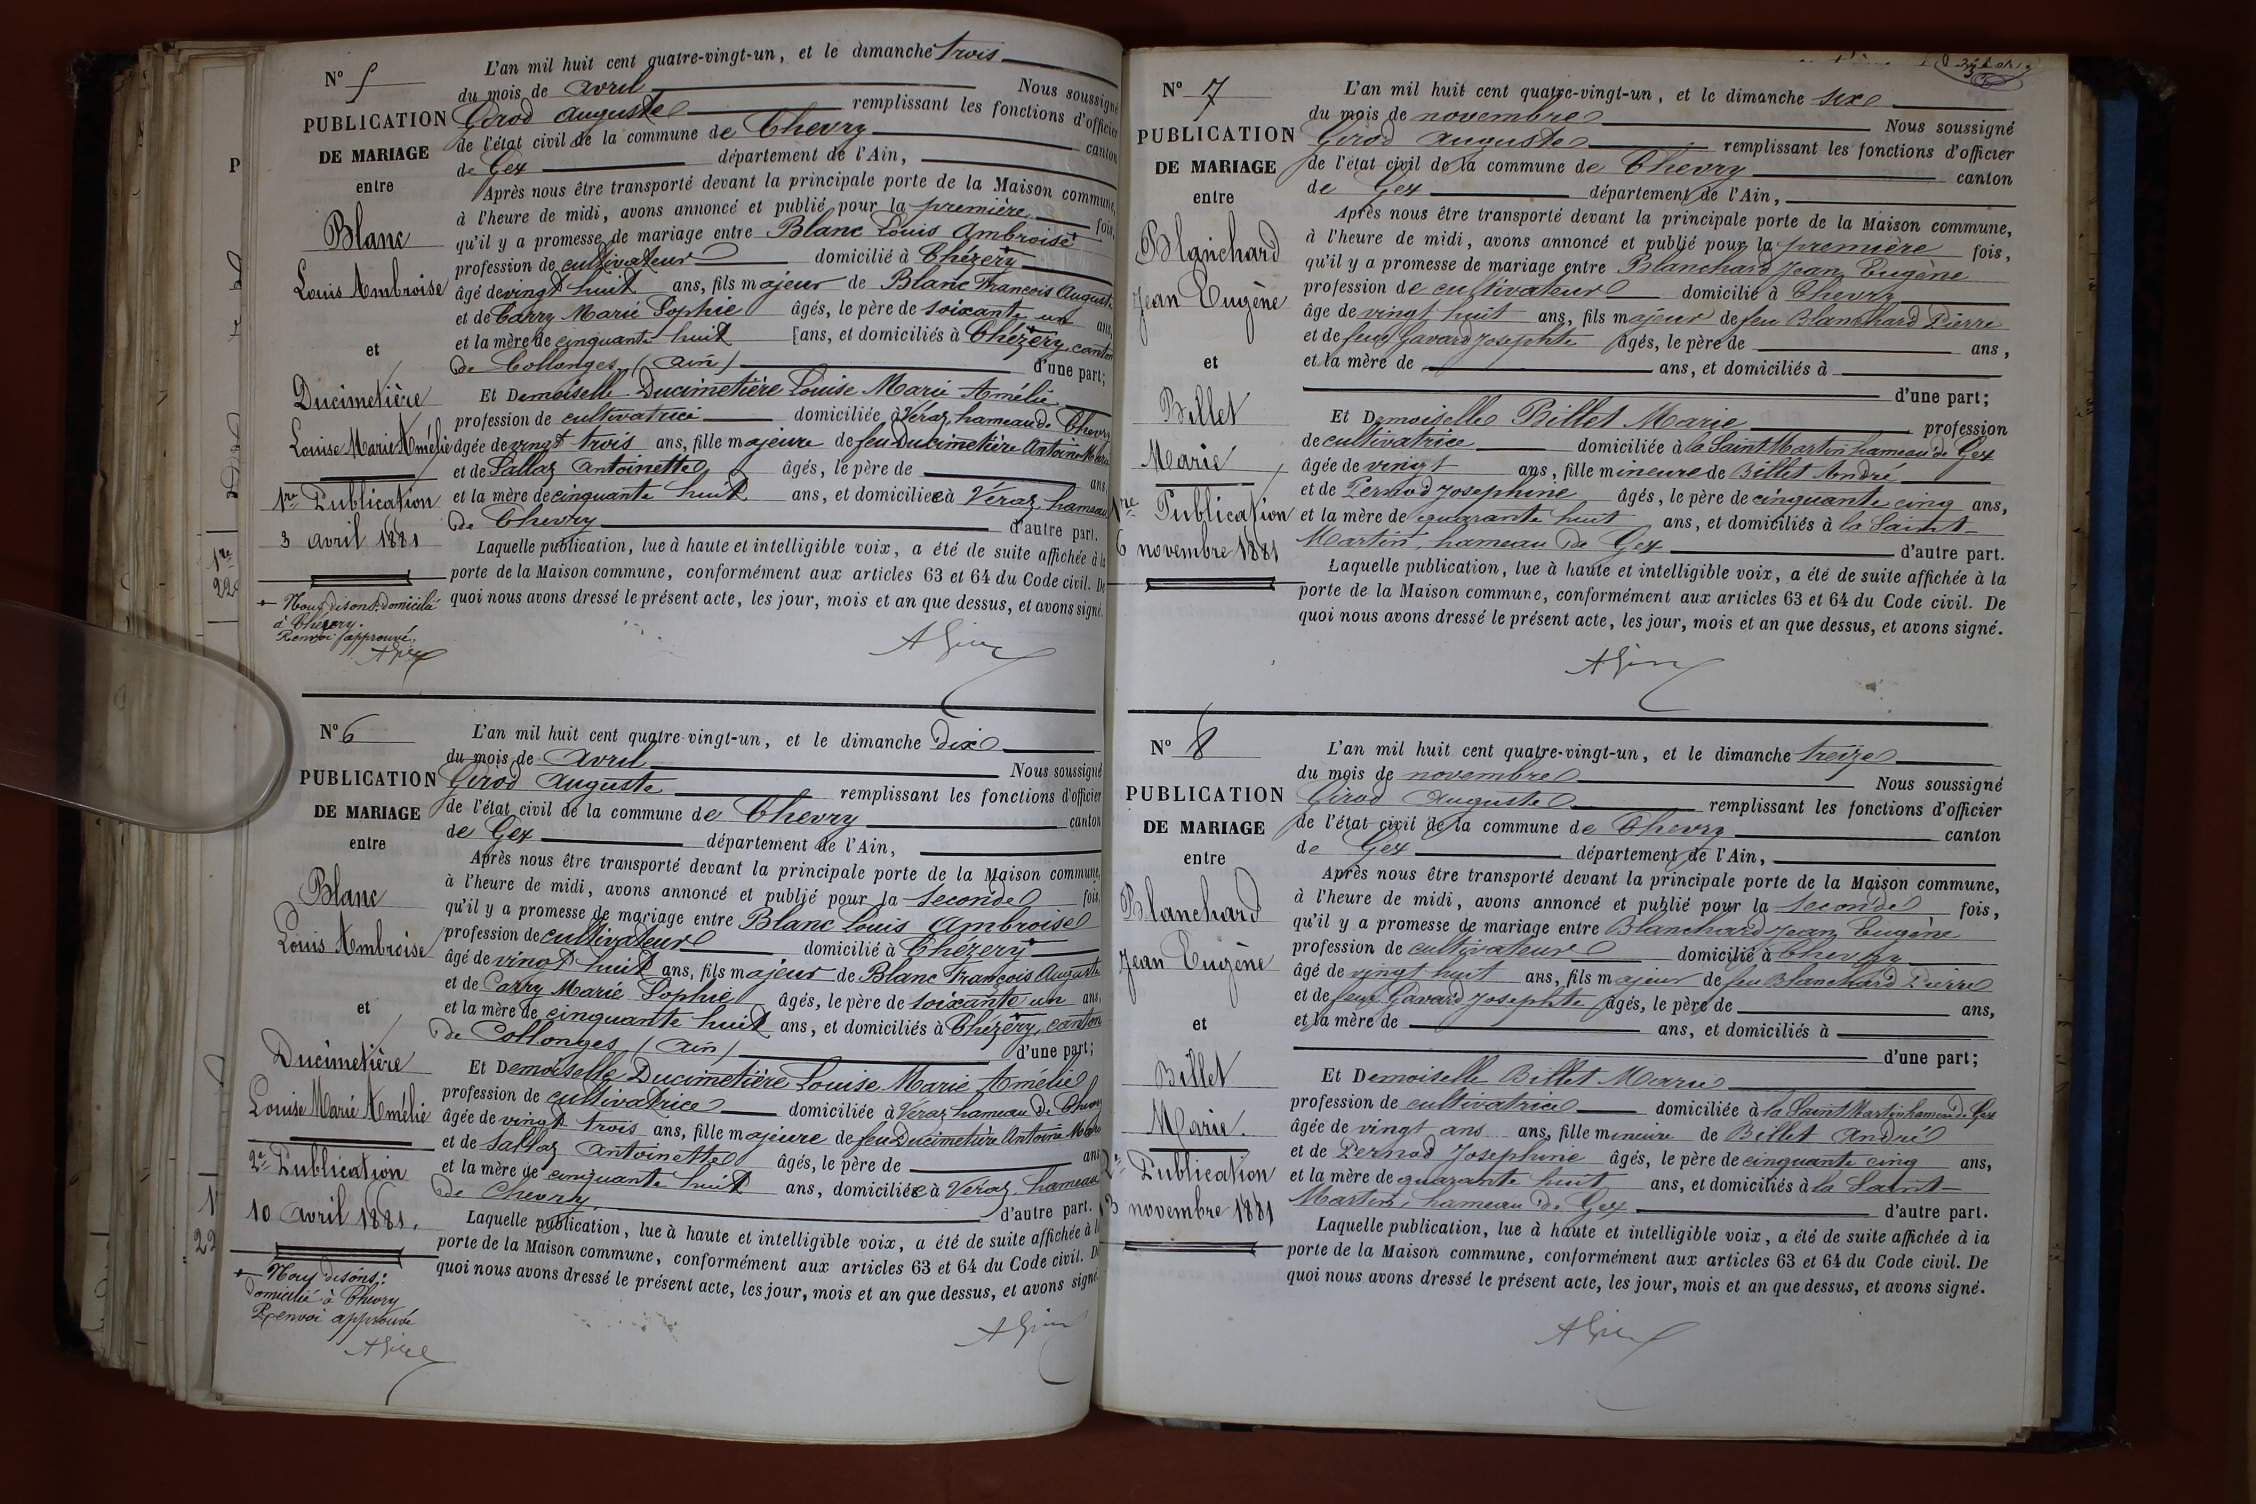 N° 5
PUBLICATION
DE MARIAGE
entre
Blanc
Louis Ambroise
et
Ducimetière
Louise Marie Amélie
1re Publication
3 avril 1881
+ Nous disons: domicilié
à Chevry.
Renvoi approuvé.
L'an mil huit cent quatre-vingt-un, et le dimanche trois
du mois de avril Nous soussigné
Girod Auguste remplissant les fonctions d'officier
de l'état civil de la commune de Chevry canton
de Gex département de l'Ain,
Après nous être transporté devant la principale porte de la Maison commune,
à l'heure de midi, avons annoncé et publié pour la première fois,
qu'il y a promesse de mariage entre Blanc Louis Ambroise
profession de cultivateur domicilié à Chézery +
âgé de vingt huit ans, fils majeur de Blanc François Auguste
et de Carry Marie Sophie âgés, le père de soixante un ans,
et la mère de cinquante huit [ans, et domiciliés à Chézery, canton
de Collonges (Ain) d'une part;
Et Demoiselle Ducimetière Louise Marie Amélie
profession de cultivatrice domiciliée à Véraz, hameau de Chevry
âgée de vingt trois ans, fille majeure de feu Ducimetière Antoine Marie
et de Sallaz Antoinette âgés, le père de ans,
et la mère de cinquante huit ans, et domiciliée à Véraz, hameau
de Chevry d'autre part.
Laquelle publication, lue à haute et intelligible voix, a été de suite affichée à la
porte de la Maison commune, conformément aux articles 63 et 64 du Code civil. De
quoi nous avons dressé le présent acte, les jour, mois et an que dessus, et avons signé.
N° 6
PUBLICATION
DE MARIAGE
entre
Blanc
Louis Ambroise
et
Ducimetière
Louise Marie Amélie
2e Publication
10 avril 1881.
+ Nous disons:
domicilié à Chevry
Renvoi approuvé
L'an mil huit cent quatre-vingt-un, et le dimanche dix
du mois de avril Nous soussigné
Girod Auguste remplissant les fonctions d'officier
de l'état civil de la commune de Chevry canton
de Gex département de l'Ain,
Après nous être transporté devant la principale porte de la Maison commune,
à l'heure de midi, avons annoncé et publié pour la seconde fois,
qu'il y a promesse de mariage entre Blanc Louis Ambroise
profession de cultivateur domicilié à Chézery +
âgé de vingt huit ans, fils majeur de Blanc François Auguste
et de Carry Marie Sophie âgés, le père de soixante un ans,
et la mère de cinquante huit ans, et domiciliés à Chézery, canton
de Collonges (Ain) d'une part;
Et Demoiselle Ducimetière Louise Marie Amélie
profession de cultivatrice domiciliée à Véraz hameau de Chevry
âgée de vingt trois ans, fille majeure de feu Ducimetière Antoine Marie
et de Sallaz Antoinette âgés, le père de ans
et la mère de cinquante huit ans, domiciliée à Véraz, hameau
de Chevry d'autre part.
Laquelle publication, lue à haute et intelligible voix, a été de suite affichée à la
porte de la Maison commune, conformément aux articles 63 et 64 du Code civil. De
quoi nous avons dressé le présent acte, les jour, mois et an que dessus, et avons signé.
N° 7
PUBLICATION
DE MARIAGE
entre
Blanchard
Jean Eugène
et
Billet
Marie
1re Publication
6 novembre 1881
L'an mil huit cent quatre-vingt-un, et le dimanche six
du mois de novembre Nous soussigné
Girod Auguste remplissant les fonctions d'officier
de l'état civil de la commune de Chevry canton
de Gex département de l'Ain,
Après nous être transporté devant la principale porte de la Maison commune,
à l'heure de midi, avons annoncé et publié pour la première fois,
qu'il y a promesse de mariage entre Blanchard Jean Eugène
profession de cultivateur domicilié à Chevry
âge de vingt huit ans, fils majeur de feu Blanchard Pierre
et de feue Gavard Josephte âgés, le père de ans,
et la mère de ans, et domiciliés à
d'une part;
Et Demoiselle Billet Marie profession
de cultivatrice domiciliée à la Saint Martin hameau de Gex
âgée de vingt ans, fille mineure de Billet André
et de Pernod Josephine âgés, le père de cinquante cinq ans,
et la mère de quarante huit ans, et domiciliés à la Saint-
Martin, hameau de Gex d'autre part.
Laquelle publication, lue à haute et intelligible voix, a été de suite affichée à la
porte de la Maison commune, conformément aux articles 63 et 64 du Code civil. De
quoi nous avons dressé le présent acte, les jour, mois et an que dessus, et avons signé.
N° 8
PUBLICATION
DE MARIAGE
entre
Blanchard
Jean Eugène
et
Billet
Marie.
2e Publication
13 novembre 1881
L'an mil huit cent quatre-vingt-un, et le dimanche treize
du mois de novembre Nous soussigné
Girod Auguste remplissant les fonctions d'officier
de l'état civil de la commune de Chevry canton
de Gex département de l'Ain,
Après nous être transporté devant la principale porte de la Maison commune,
à l'heure de midi, avons annoncé et publié pour la seconde fois,
qu'il y a promesse de mariage entre Blanchard Jean Eugène
profession de cultivateur domicilié à Chevry
âgé de vingt huit ans, fils majeur de feu Blanchard Pierre
et de feue Gavard Josephte âgés, le père de ans,
et la mère de ans, et domiciliés à
d'une part;
Et Demoiselle Billet Marie
profession de cultivatrice domiciliée à la Saint Martin hameau de Gex
âgée de vingt ans ans, fille mineure de Billet André
et de Pernod Josephine âgés, le père de cinquante cinq ans,
et la mère de quarante huit ans, et domiciliés à la Saint-
Martin, hameau de Gex d'autre part.
Laquelle publication, lue à haute et intelligible voix, a été de suite affichée à la
porte de la Maison commune, conformément aux articles 63 et 64 du Code civil. De
quoi nous avons dressé le présent acte, les jour, mois et an que dessus, et avons signé.